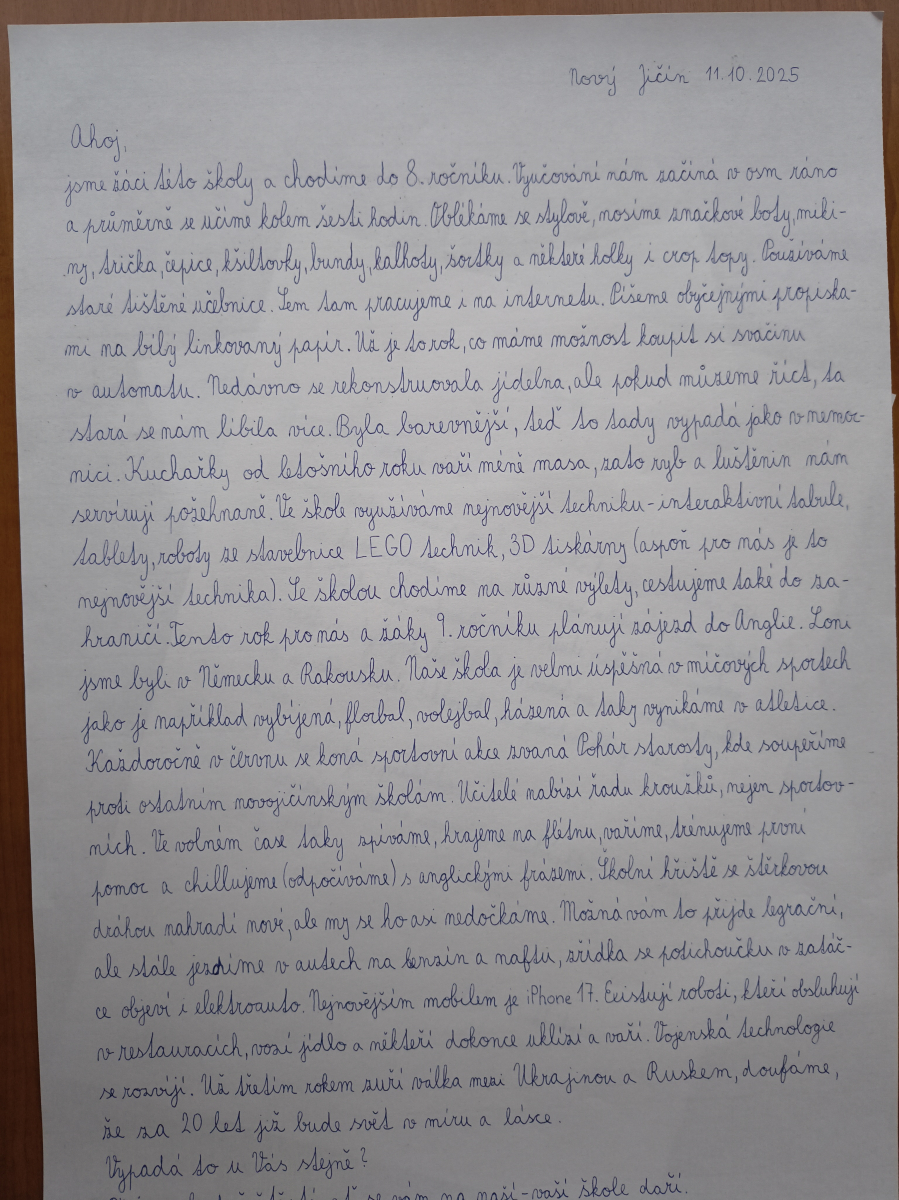 Nový Jičín 11.10.2025
Ahoj,
jsme žáci této školy a chodíme do 8. ročníku. Vyučování nám začíná v osm ráno
a průměrně se učíme kolem šesti hodin. Oblékáme se stylově, nosíme značkové boty, miki-
ny, trička, čepice, kšiltovky, bundy, kalhoty, šortky a některé holky i crop topy. Používáme
staré tištěné učebnice. Sem tam pracujeme i na internetu. Píšeme obyčejnými propiska-
mi na bílý linkovaný papír. Už je to rok, co máme možnost koupit si svačinu
v automatu. Nedávno se rekonstruovala jídelna, ale pokud můžeme říct, ta
stará se nám líbila více. Byla barevnější, teď to tady vypadá jako v nemoc-
nici. Kuchařky od letošního roku vaří méně masa, zato ryb a luštěnin nám
servírují požehnaně. Ve škole využíváme nejnovější techniku - interaktivní tabule,
tablety, roboty ze stavebnice LEGO technik, 3D tiskárny (aspoň pro nás je to
nejnovější technika). Se školou chodíme na různé výlety, cestujeme také do za-
hraničí. Tento rok pro nás a žáky 9. ročníku plánují zájezd do Anglie. Loni
jsme byli v Německu a Rakousku. Naše škola je velmi úspěšná v míčových sportech
jako je například vybíjená, florbal, volejbal, házená a taky vynikáme v atletice.
Každoročně v červnu se koná sportovní akce zvaná Pohár starosty, kde soupeříme
proti ostatním novojičínským školám. Učitelé nabízí řadu kroužků, nejen sportov-
ních. Ve volném čase taky zpíváme, hrajeme na flétnu, vaříme, trénujeme první
pomoc a chillujeme (odpočíváme) s anglickými frázemi. Školní hřiště se štěrkovou
dráhou nahradí nové, ale my se ho asi nedočkáme. Možná vám to přijde legrační,
ale stále jezdíme v autech na benzín a naftu, zřídka se potichoučku v zatáč-
ce objeví i elektroauto. Nejnovějším mobilem je iPhone 17. Existují roboti, kteří obsluhují
v restauracích, vozí jídlo a někteří dokonce uklízí a vaří. Vojenská technologie
se rozvíjí. Už třetím rokem zuří válka mezi Ukrajinou a Ruskem, doufáme,
že za 20 let již bude svět v míru a lásce.
Vypadá to u Vás stejně?
se vám na naší-vaší škole daří.